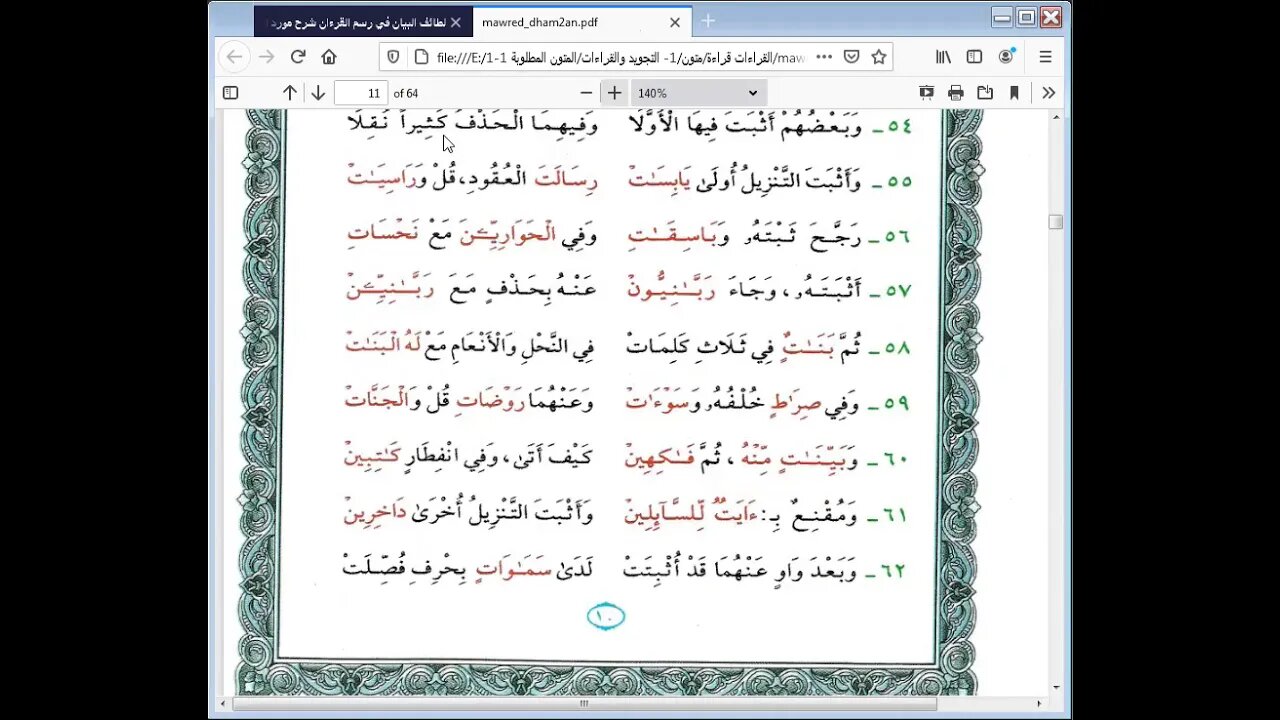 لطائف البيان في رسم القرءان شرح مورد ا
mawred_dham2an.pdf
file:///E:/1-1 التجويد والقراءات/المتون المطلوبة -1/القراءات قراءة/متون/maw
11 of 64 140%
٥٤ - وَبَعْضُهُمْ أَثْبَتَ فِيهَا الْأَوَّلَا وَفِيهِمَا الْحَذْفَ كَثِيراً نَقِلَا
٥٥ - وَأَثْبَتَ التَّنْزِيلُ أُولَىٰ يَابِسَـٰتْ رِسَالَتَ الْعُقُودِ، قُلْ وَرَاسِيَـٰتْ
٥٦ - رَجَّحَ ثَبْتَهُۥ وَبَاسِقَـٰتِ وَفِي الْحَوَارِيِّـۧنَ مَعْ نَحْسَاتِ
٥٧ - أَثْبَتَهُۥ، وَجَاءَ رَبَّـٰنِيُّونْ عَنْهُ بِحَذْفٍ مَعَ رَبَّـٰنِيِّـۧنْ
٥٨ - ثُمَّ بَنَـٰتٌ فِي ثَلَاثِ كَلِمَاتْ فِي النَّحْلِ وَالْأَنْعَامِ مَعْ لَهُ الْبَنَـٰتْ
٥٩ - وَفِي صِرَٰطٍ خُلْفُهُۥ وَسَوْءَاتْ وَعَنْهُمَا رَوْضَاتِ قُلْ وَالْجَنَّاتْ
٦٠ - وَبَيِّنَـٰتٍ مِّنْهُ، ثُمَّ فَـٰكِهِينْ كَيْفَ أَتَىٰ، وَفِي انْفِطَارٍ كَـٰتِبِينْ
٦١ - وَمُقْنِعٌ بِـ: ءَايَـٰتٌ لِّلسَّآئِلِينْ وَأَثْبَتَ التَّنْزِيلُ أُخْرَىٰ دَاخِرِينْ
٦٢ - وَبَعْدَ وَاوٍ عَنْهُمَا قَدْ أُثْبِتَتْ لَدَىٰ سَمَـٰوَاتٍ بِحْرِفِ فُصِّلَتْ
١٠